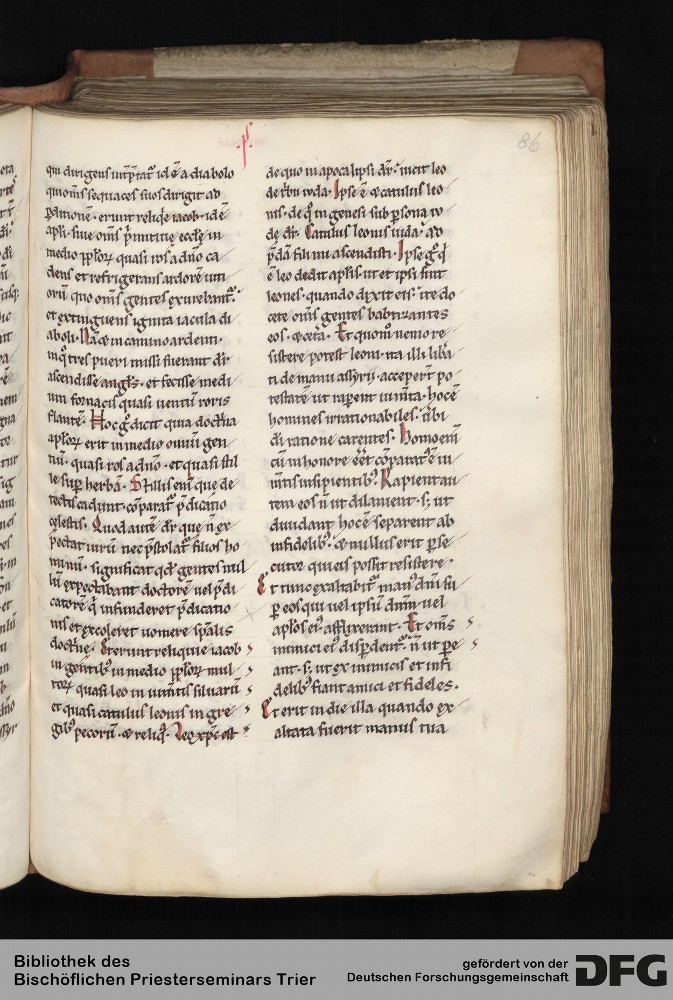 .p̄.
86
qui dirigens int̄p̄tat᷑ id ē a diabolo
qui om̄s sequaces suos dirigit ad
p̄ditionē. erunt reliq̨e iacob. id ē
apl̄i siue om̄s p̄mitiuę ecclę in
medio pp̄loꝝ quasi ros a dn̄o ca
dens et refrigerans ardorē uiti
orū quo om̄s gentes exurebant᷑.
et extinguens ignita iacula di
aboli. Nā ⁊ in camino ardenti.
in q̊ tres pueri missi fuerant dr̄
ascendisse angl̄s. et fecisse medi
um fornacis quasi uentū roris
flantē. Hoc g̊ dicit quia doctͥna
apl̄oꝝ erit in medio omniū gen
tiū. quasi ros a dn̄o. et quasi stil
le sup̄ herbā. Stillis eni᷑ que de
tectis cadunt cōparat᷑ p̄dicatio
cęlestis. Quod autē dr̄ quę n̄ ex
pectat uirū nec p̄stolat᷑ filios ho
minū. significat qd̄ gentes nul
lū expectabant doctorē uel p̄di
catorē q̄ infunderet p̄dicatio
nis et excoleret uomere sp̄alis
doctͥnę. Et erunt reliquie iacob
in gentib; in medio pp̄loꝝ mul
toꝝ quasi leo in ium̄tis siluarū
et quasi catulus leonis in gre
gib; pecorū. ⁊ reliq̄. Leo xp̄c est
de quo in apocalipsi dr̄. uicit leo
de tͥbu iuda. Ipse ē ⁊ catulus leo
nis. de q̊ in genesi sub p̄sona iu
dę dr̄. Catulus leonis iuda. ad
p̄dā fili mi ascendisti. Ipse g̊ qͥ
ē leo dedit apl̄is ut et ipsi sint
leones. quando dixit eis. ite do
cete om̄s gentes babtizantes
eos. ⁊ cet̄a. Et quom̊ nemo re
sistere potest leoni. ita illi lib̄a
ti de manu assyrii. acceper̄t po
testatē ut rap̄ent ium̄ta. hoc ē
homines irrationabiles. v̄bi
dī ratione carentes. Homo eni᷑
cū in honore eēt cōparat᷑ ē iu
m̄tis insipientib;. Rapient au
tem eos n̄ ut dilanient. s; ut
diuidant hoc ē separent ab
infidelib;. ⁊ nullus erit p̄se
cutor qui eis possit resistere.
Et tunc exaltabit᷑ man᷒ dn̄i su
p̄ eos qui uel ipsū dn̄m uel
apl̄os ei᷒ afflixerant. Et om̄s
inimici ei᷒ disp̄dent᷑. n̄ ut pe
ant. s; ut ex inimicis et infi
delib; fiant amici et fideles.
Et erit in die illa quando ex
altata fuerit manus tua
Bibliothek des
Bischöflichen Priesterseminars Trier
gefördert von der
Deutschen Forschungsgemeinschaft
DFG